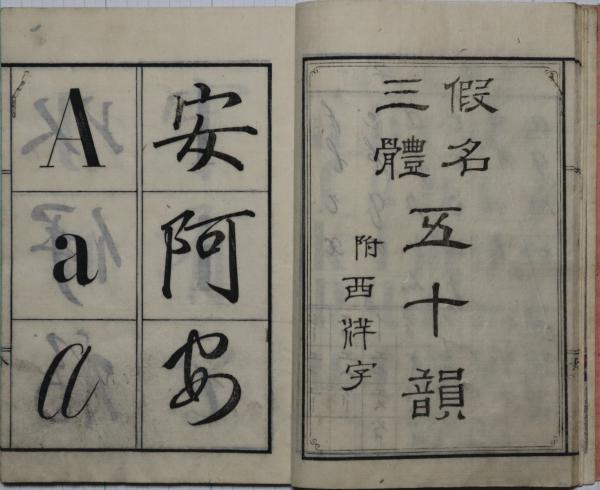 假名
三體
五十韻
附西洋字
安
阿
安
A
a
a